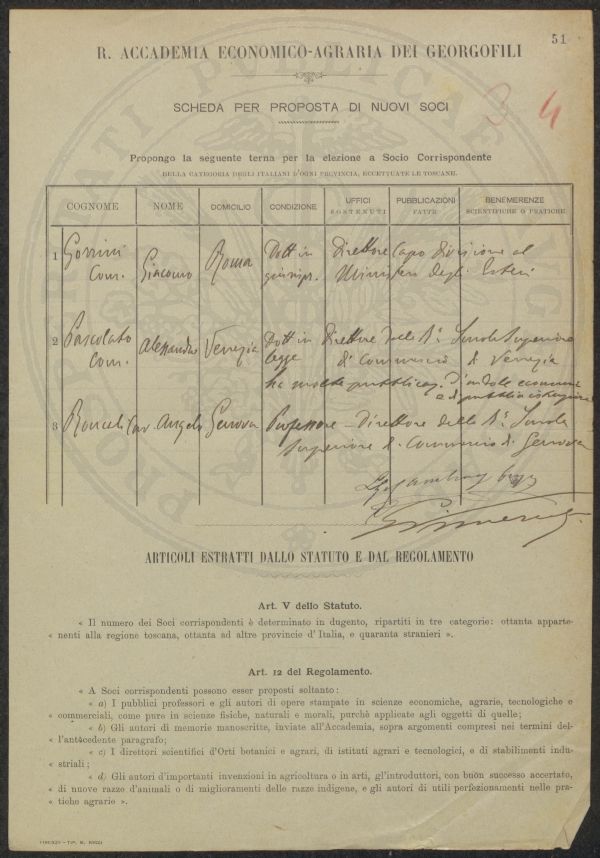 51
R. ACCADEMIA ECONOMICO-AGRARIA DEI GEORGOFILI
SCHEDA PER PROPOSTA DI NUOVI SOCI
3 4
Propongo la seguente terna per la elezione a Socio Corrispondente
DELLA CATEGORIA DEGLI ITALIANI D'OGNI PROVINCIA, ECCETTUATE LE TOSCANE.
COGNOME NOME DOMICILIO CONDIZIONE UFFICI SOSTENUTI PUBBLICAZIONI FATTE BENEMERENZE SCIENTIFICHE O PRATICHE
1 Gorrini Giacomo Roma Dott in Direttore Capo Divisione al
Com. giurispr. Ministero degli Esteri
2 Pascolato Alessandro Venezia Dott in Direttore della Rª Scuola Superiore
Com. legge di Commercio di Venezia
ha molte pubblicaz. d'indole econom
e di pubblica istruzione
3 Roncali Cav. Angelo Genova Professore - Direttore della Rª Scuola
Superiore di Commercio di Genova
ARTICOLI ESTRATTI DALLO STATUTO E DAL REGOLAMENTO
Art. V dello Statuto.
« Il numero dei Soci corrispondenti è determinato in dugento, ripartiti in tre categorie: ottanta apparte-
« nenti alla regione toscana, ottanta ad altre provincie d'Italia, e quaranta stranieri ».
Art. 12 del Regolamento.
« A Soci corrispondenti possono esser proposti soltanto:
« a) I pubblici professori e gli autori di opere stampate in scienze economiche, agrarie, tecnologiche e
« commerciali, come pure in scienze fisiche, naturali e morali, purchè applicate agli oggetti di quelle;
« b) Gli autori di memorie manoscritte, inviate all'Accademia, sopra argomenti compresi nei termini del-
« l'antecedente paragrafo;
« c) I direttori scientifici d'Orti botanici e agrari, di istituti agrari e tecnologici, e di stabilimenti indu-
« striali;
« d) Gli autori d'importanti invenzioni in agricoltura o in arti, gl'introduttori, con buon successo accertato,
« di nuove razze d'animali o di miglioramenti delle razze indigene, e gli autori di utili perfezionamenti nelle pra-
« tiche agrarie ».
FIRENZE - TIP. M. RICCI